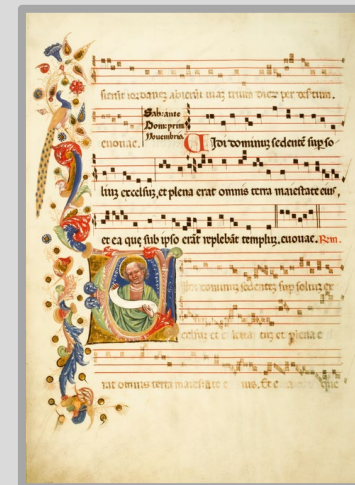 abierūt trium diez per
Sab ante
Dom prim
Nouembris
euouae. Uidi dominuz sedentē sup so
liuz excelsuz, et plena erat omnis terra maiestate eius,
et ea que sub ipso erāt replebāt templuz. euouae.
idi dominuz sedentez sup soliuz ex
celsuz et et plena e
rat omnis terra maiestate ius, Et que